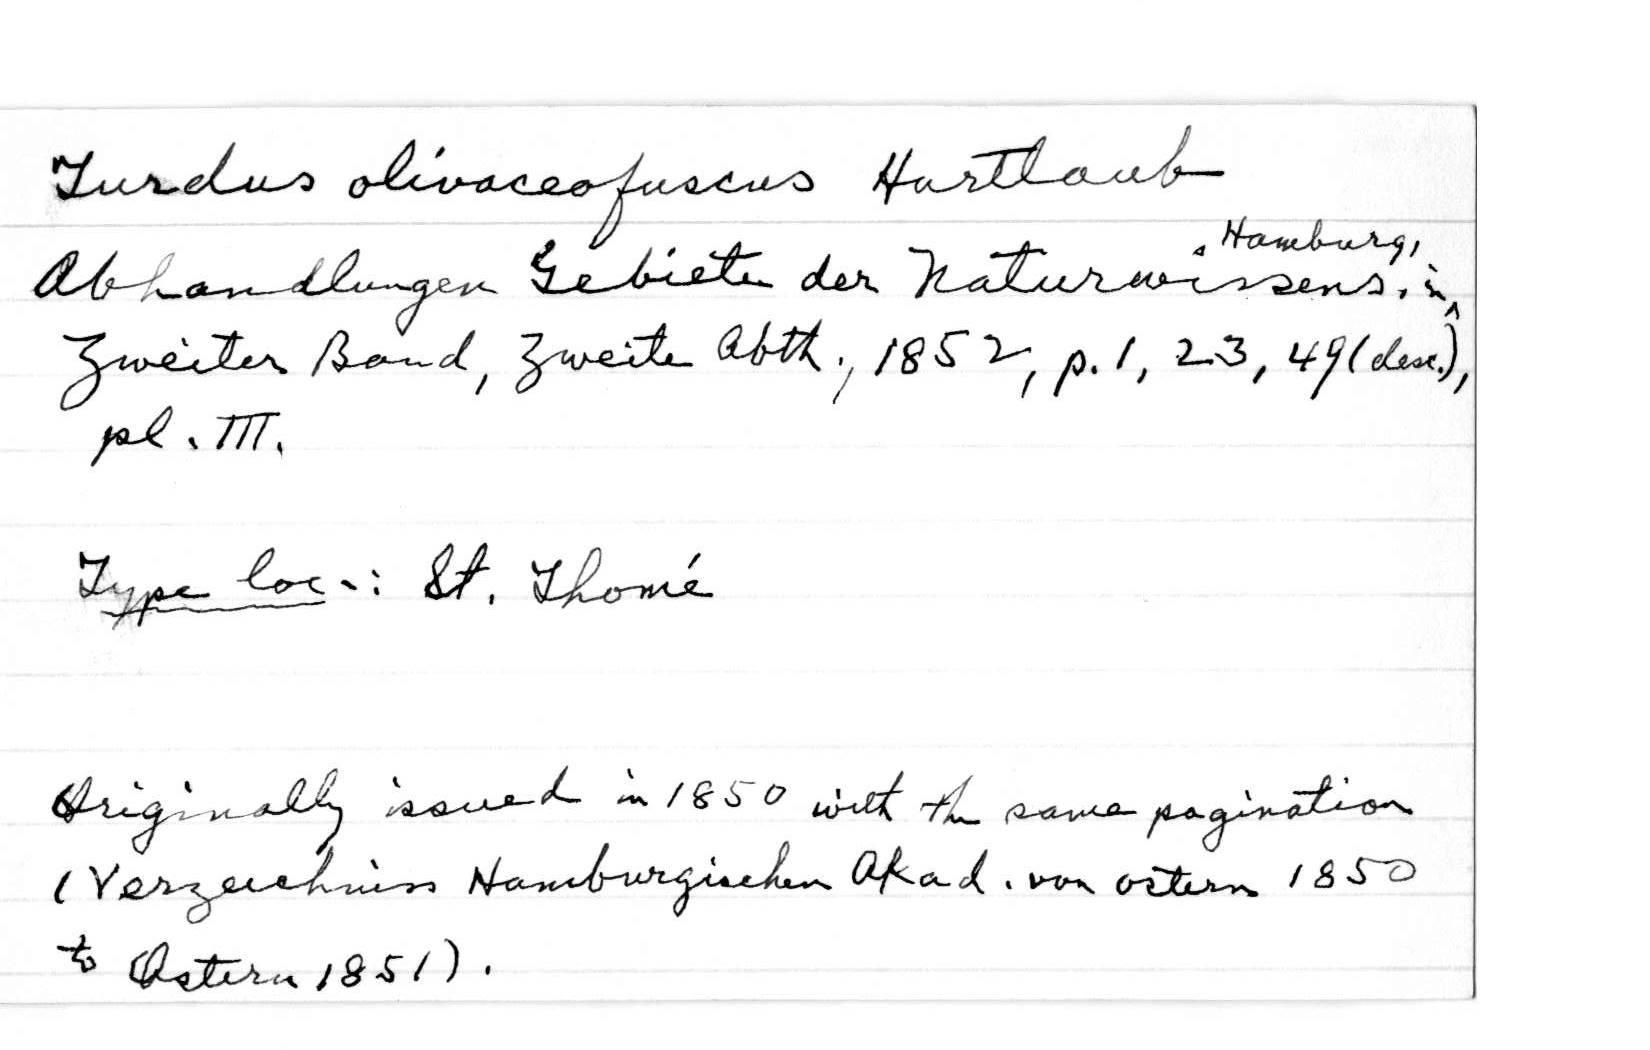 Turdus olivaceofuscus Hartlaub
Abhandlungen Gebiete der Naturwissens. in Hamburg,
Zweiter Band, Zweite Abth., 1852, p. 1, 23, 49 (desc.),
pl. III.
Type loc.: St. Thomé
Originally issued in 1850 with the same pagination
(Verzeichniss Hamburgischen Akad. von ostern 1850
to Ostern 1851).